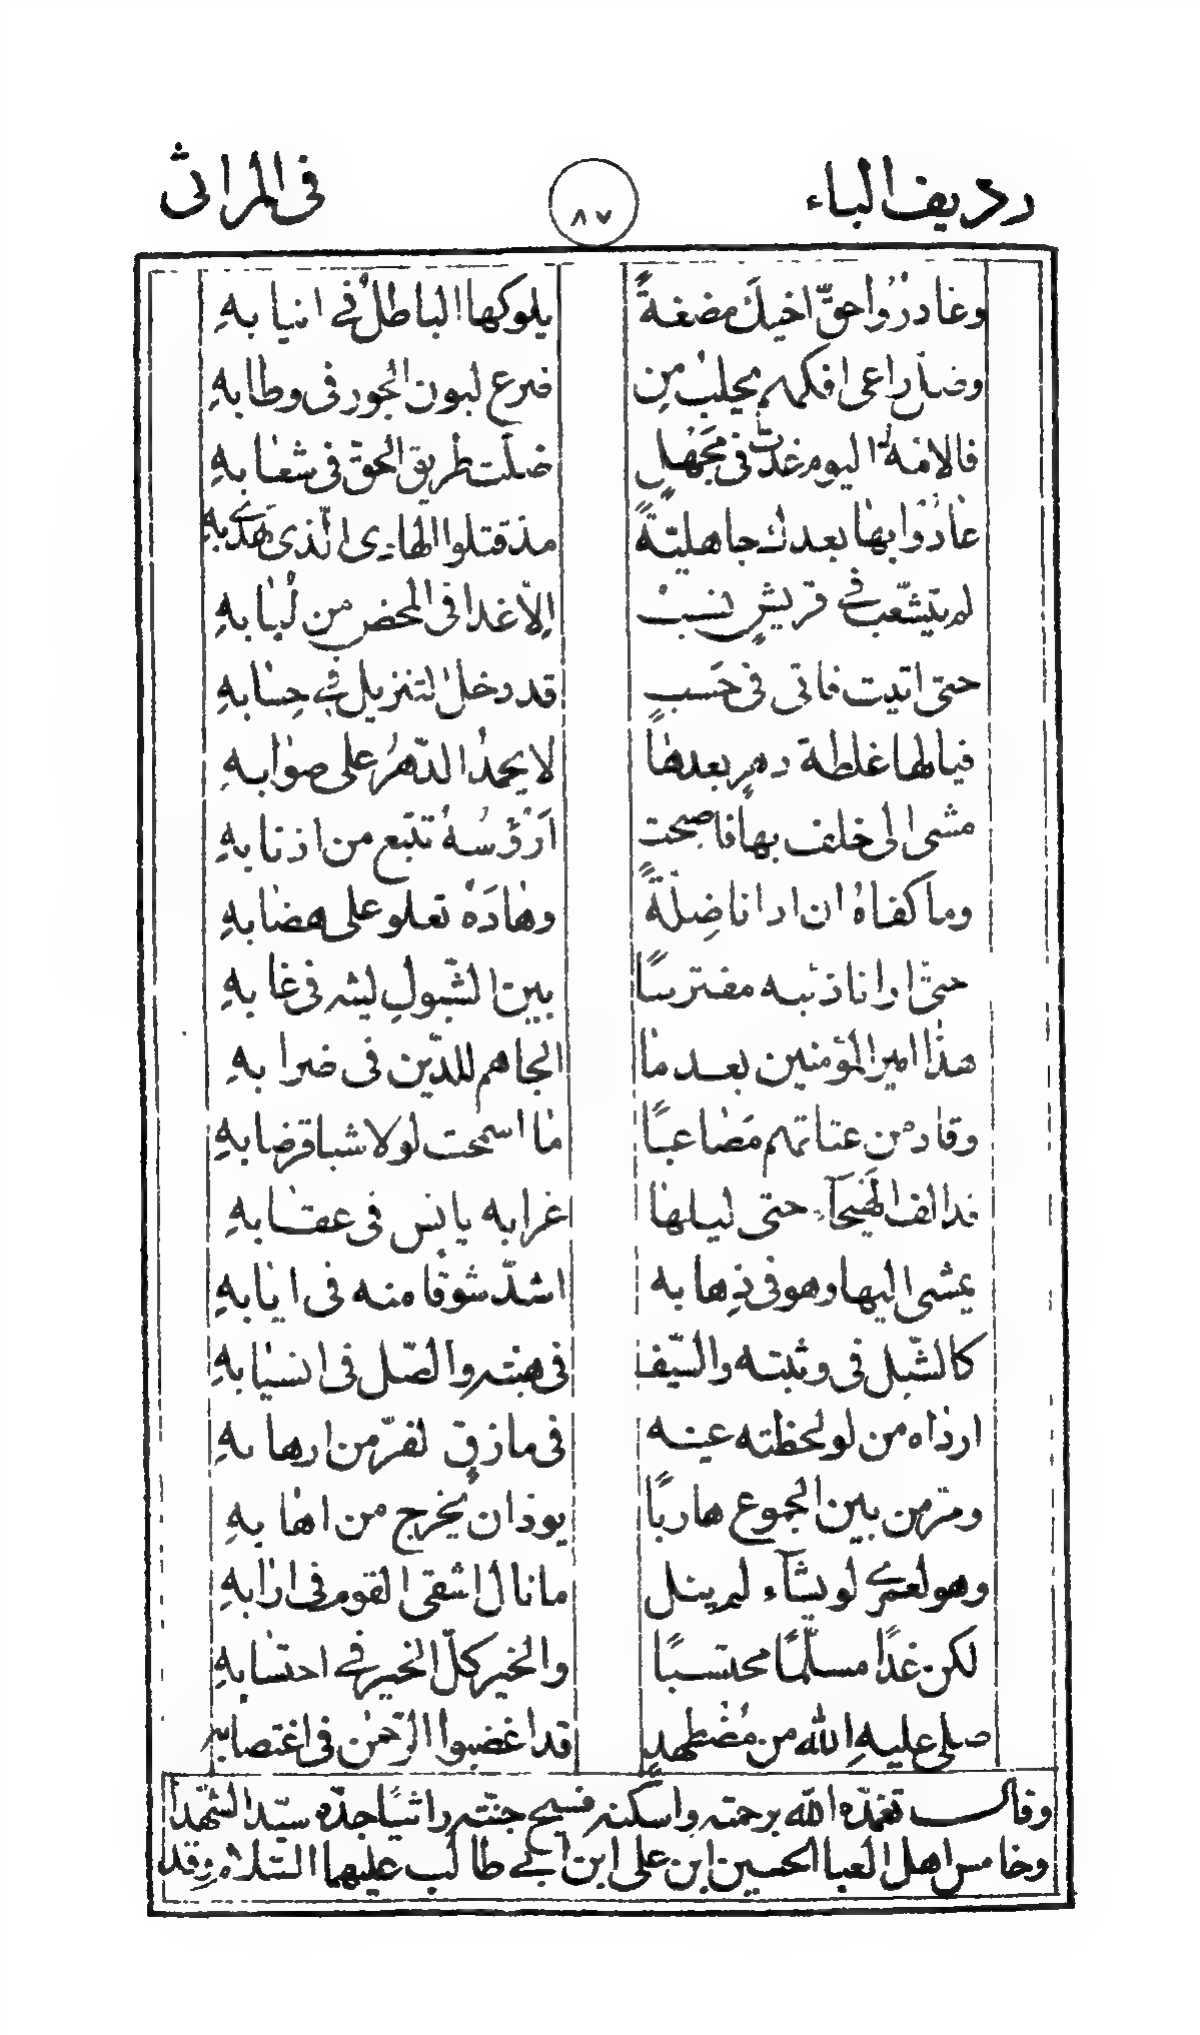 رديف الباء ٨٧ فى المراثى
وغادرُوا حقّ اخيك مضغةً يلوكها الباطلُ فے انيابهِ
وضلّ راعى افكهم يحلب من ضرع لبون الجور فى وطابهِ
فالامّة اليوم غدت فى مجهلٍ ضلّت طريق الحق فى شعابهِ
عادُوا بها بعدك جاهليّةً مذ قتلوا الهادى الّذى هدے بهِ
لم يتشعّب فے قريشٍ نسب الّا غدا فى المحض من لُبابهِ
حتى اتيت فاتى فى حَسب قد دخل التنزيل فے حِسابهِ
فيالها غلطة دهرٍ بعدها لا يحمدُ الدّهرُ على صوابهِ
مشى الى خلف بها فاصبحت ارؤسهُ تتبع من اذنابهِ
وما كفاهُ ان ارانا ضِلّةً وهادَهُ تعلو على هضابهِ
حتّى ارانا ذئبه مفترسًا بين الشّبولِ ليثه فى غابهِ
هذا امير المؤمنين بعدما الجاهم للدّين فى ضرابهِ
وقاد من عتاتهم مصاعبًا ما اسمحت لولا شبا قرضابهِ
قد الف الهَيجآء حتى ليلها غرابه يانس فى عقابهِ
يمشى اليها وهو فى ذِهابه اشدّ شوقًا منه فى ايابهِ
كالشّبل فى وثبته والسّيف فى هبّته والصّل فى انسيابهِ
ارداه من لو لحظته عينه فى مازقٍ لفرّ من ارهابه
ومرّ من بين الجموع هاربًا يودّ ان يخرج من اهابهِ
وهو لعمرے لو يشآء لم ينل ما نال اشقى القوم فى ارابهِ
لكن غدًا مسلّمًا محتسبًا والخير كلّ الخير فے احتسابهِ
صلى عليهِ الله من مُضطهدٍ قد اغضبوا الرّحمن فى اغتصابهِ
وقال تغمّده الله برحمته واسكنه فسيح جنّته راثيًا جدّه سيّد الشّهدآ
وخامس اهل العبا الحسين ابن على ابن ابے طالب عليهما السّلام وقد